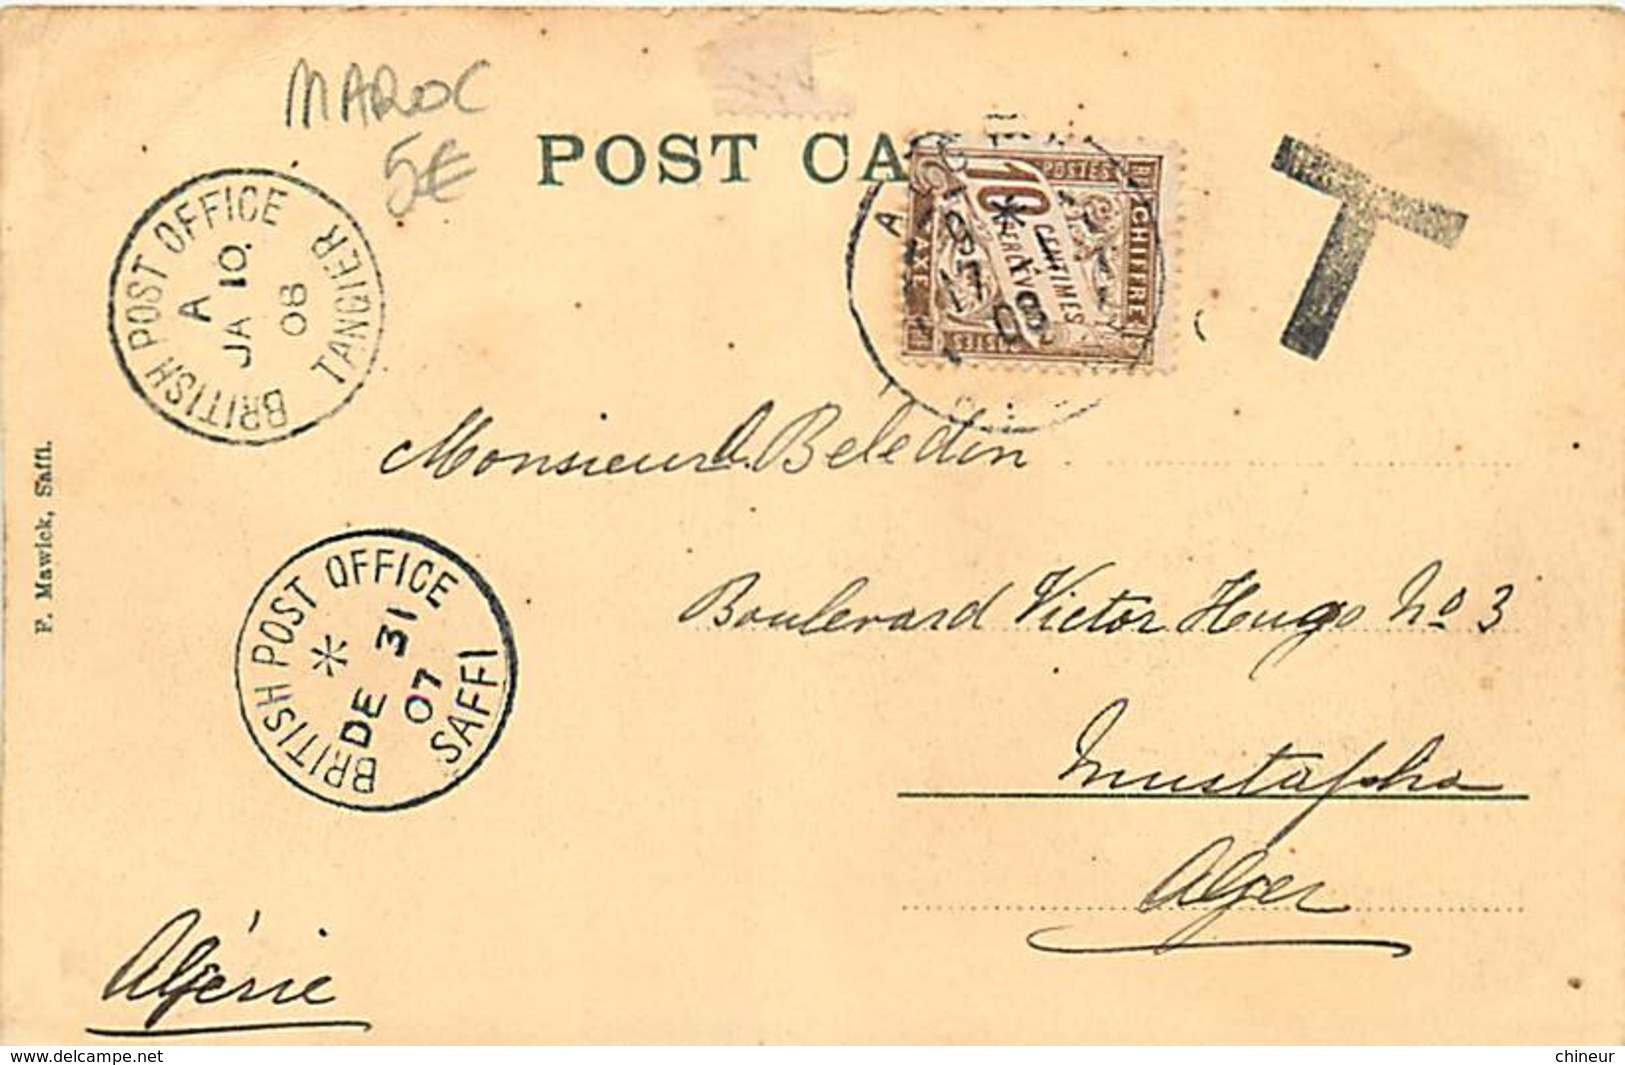 MAROC
5€
POST CA
BRITISH POST OFFICE
TANGIER
A
JA 10
08
10
CENTIMES
POSTES
CHIFFRE
TAXE
T
Monsieur A. Beledin
F. Mawick, Saffi.
BRITISH POST OFFICE
SAFFI
DE 31
07
Boulevard Victor Hugo No 3
Mustapha
Alger
Algérie
www.delcampe.net
chineur